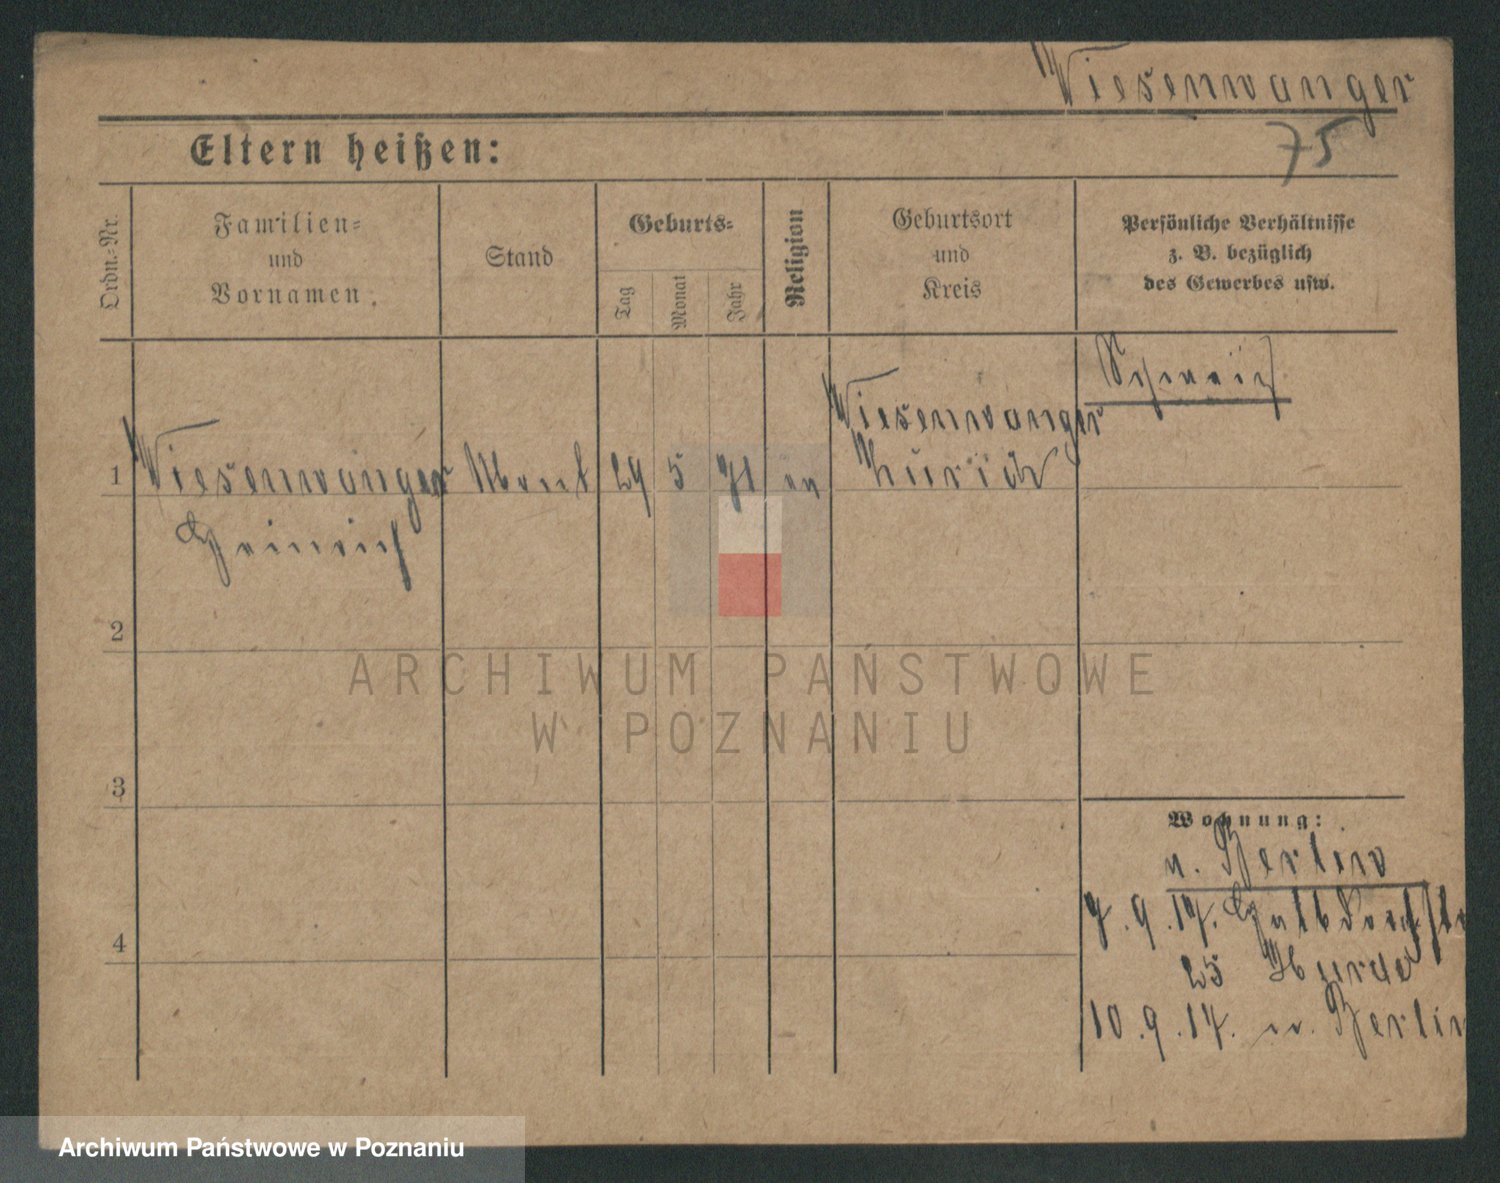 Wiesenwanger
75
Eltern heißen:
Ordn.-Nr.
Familien-
und
Vornamen.
Stand
Geburts-
Tag
Monat
Jahr
Religion
Geburtsort
und
Kreis
Persönliche Verhältnisse
z. B. bezüglich
des Gewerbes usw.
Schweiz
1
Wiesenwanger
Heinrich
29
5
71
ev
Wiesenwanger
Zürich
2
3
4
Wohnung:
n. Berlin
7.9.17.
25
10.9.17. n. Berlin
ARCHIWUM PAŃSTWOWE
W POZNANIU
Archiwum Państwowe w Poznaniu